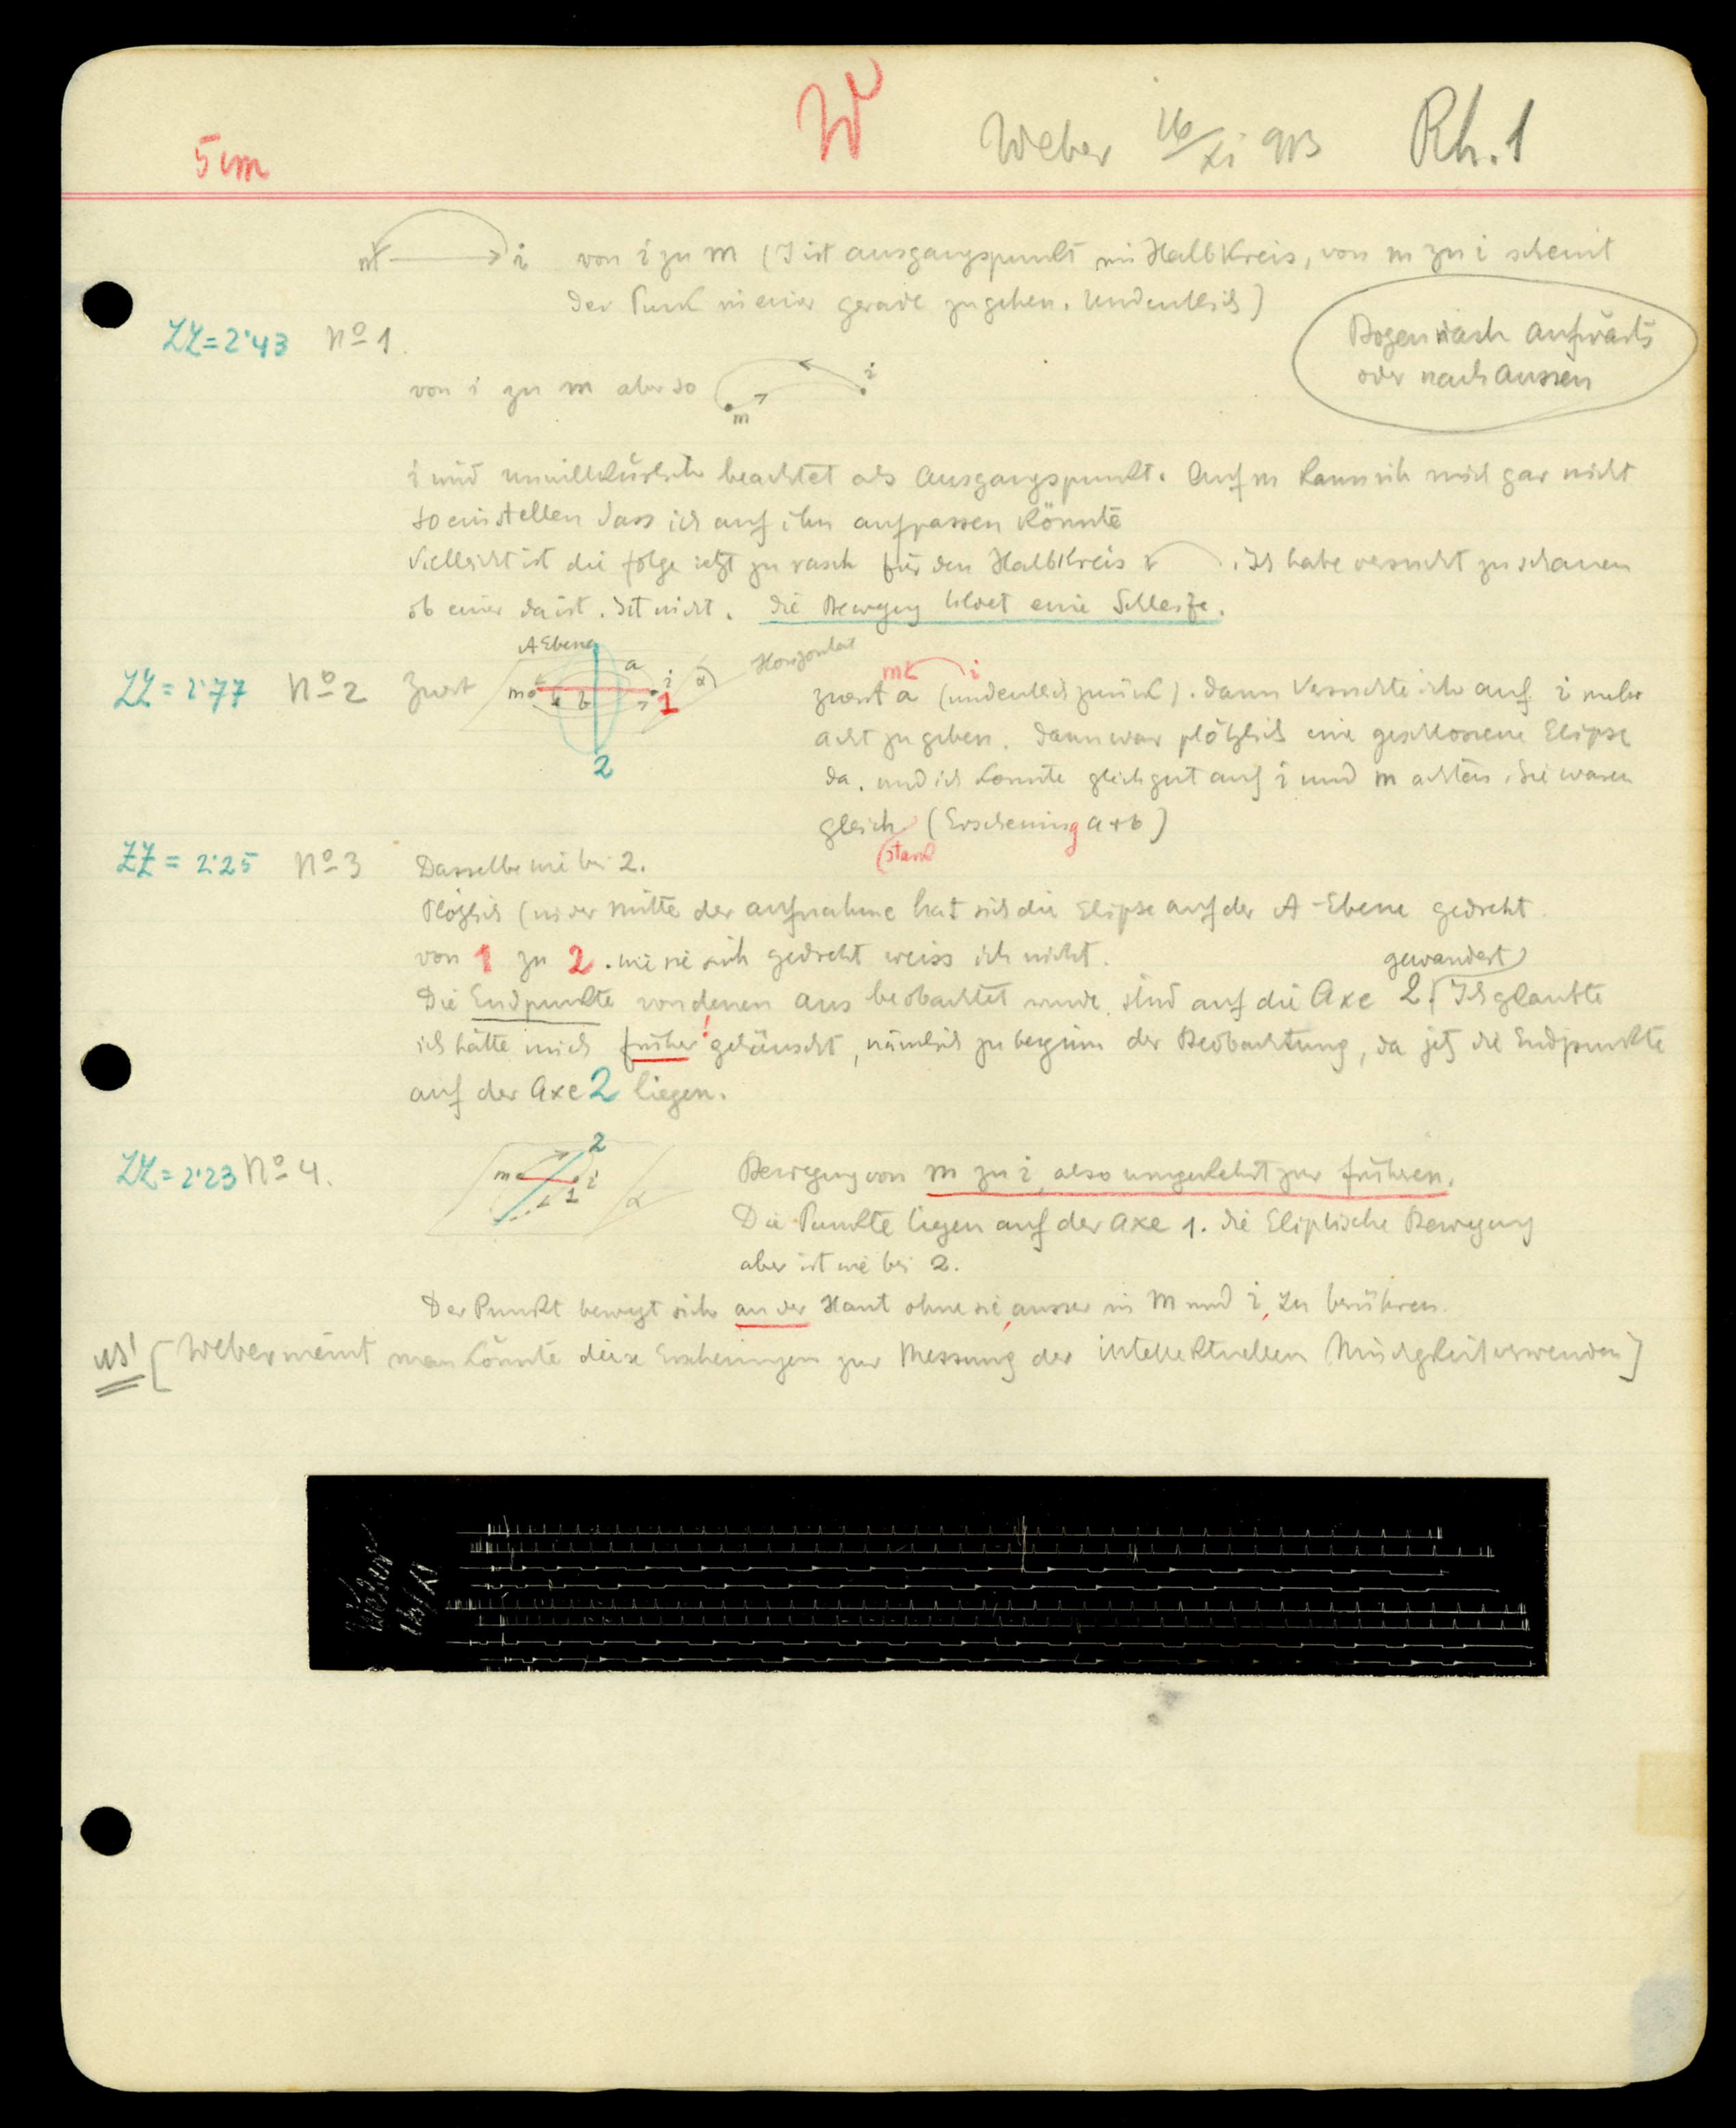 5 cm
W
Weber 26/XI 913 Rh. 1
m i von i zu m (I ist ausgangspunkt im Halbkreis, von m zu i scheint
der Punkt in einer gerade zu gehen. Undeutlich)
ZZ = 2'43 No 1.
Bogen nach aufwärts
oder nach aussen
von i zu m aber so m i
i wird unwillkürlich beachtet als Ausgangspunkt. Auf m kann ich mich gar nicht
so einstellen dass ich auf ihn aufpassen könnte
Vielleicht ist die folge jetzt zu rasch für den Halbkreis. Ich habe versucht zu schauen
ob einer da ist. Ist nicht. Die Bewegung bildet eine Schleife.
A Ebene a m b i α 1 2 Horizontal
ZZ = 2'77 No 2 zuerst
m i
zuerst a (undeutlich zurück). dann versuchte ich auf i mehr
acht zu geben. dann war plötzlich eine geschlossene Elipse
da. und ich konnte gleich gut auf i und m achten. Sie waren
gleich (Erscheinung a+b)
(stark
ZZ = 2'25 No 3 Dasselbe wie bei 2.
Plözlich (in der mitte der aufnahme hat sich die Elipse auf der A-Ebene gedreht
von 1 zu 2. wie sie sich gedreht weiss ich nicht.
gewandert
Die Endpunkte von denen aus beobachtet wurde sind auf die Axe 2. Ich glaubte
ich hätte mich früher! getäuscht, nämlich zu beginn der Beobachtung, da jetz die Endpunkte
auf der Axe 2 liegen.
ZZ = 2'23 No 4.
m i 1 2 α
Bewegung von m zu i, also umgekehrt zur früheren.
Die Punkte liegen auf der Axe 1. die Eliptische Bewegung
aber ist wie bei 2.
Der Punkt bewegt sich an der Haut ohne sie, ausser in m und i, zu berühren.
[Weber meint man könnte diese Erscheinungen zur Messung der intellektuellen Müdigkeit verwenden]
Weber
26/XI